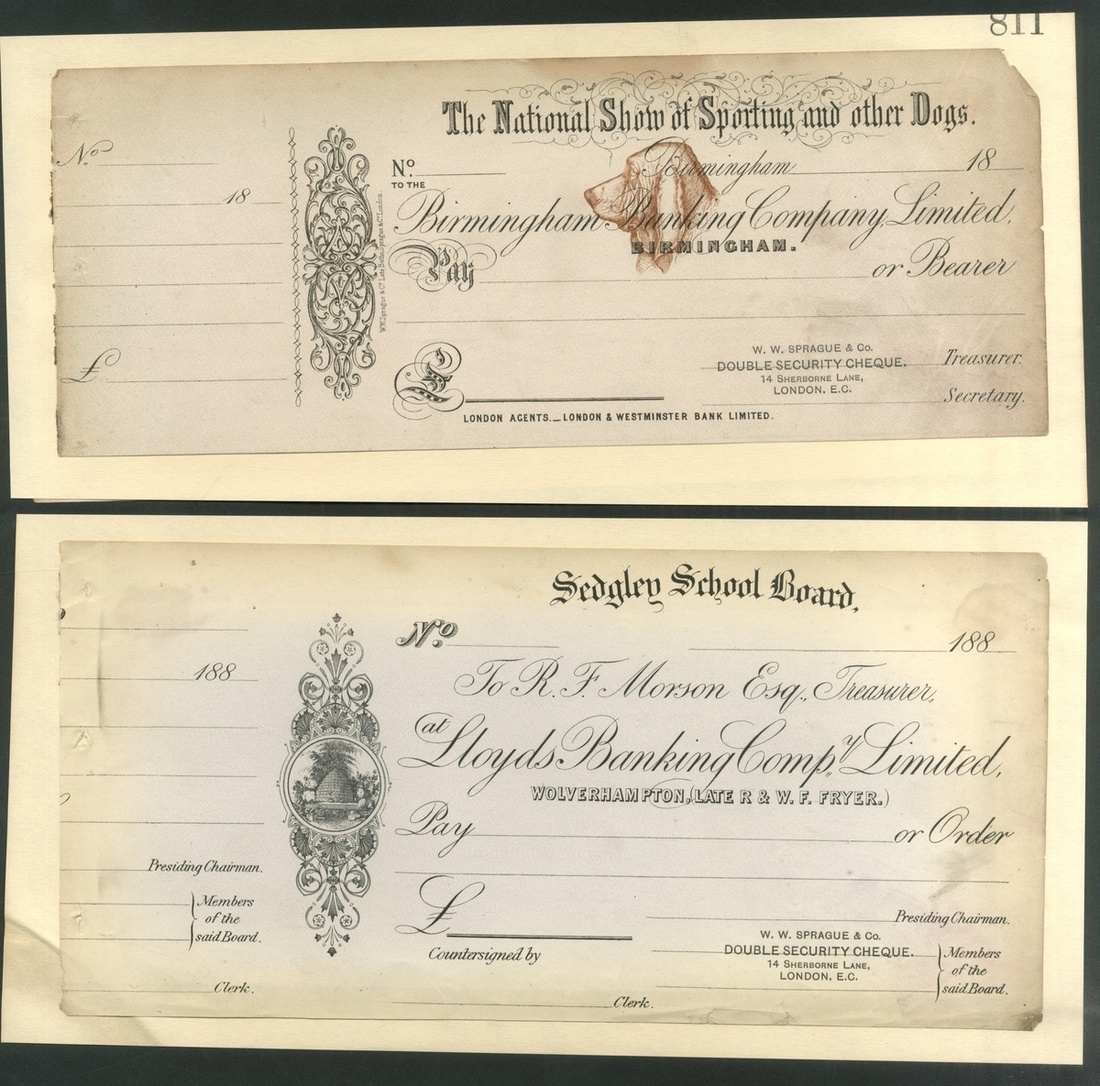 811
The National Show of Sporting and other Dogs.
No
18
No.
Birmingham 18
TO THE
Birmingham Banking Company, Limited,
BIRMINGHAM.
Pay
or Bearer
£
£
W. W. SPRAGUE & Co.
DOUBLE SECURITY CHEQUE.
14 SHERBORNE LANE,
LONDON. E.C.
Treasurer.
Secretary.
LONDON AGENTS._LONDON & WESTMINSTER BANK LIMITED.
Sedgley School Board,
No
188
188
To R. F. Morson Esq., Treasurer,
at
Lloyds Banking Compy Limited,
WOLVERHAMPTON, (LATE R & W. F. FRYER.)
Pay
or Order
Presiding Chairman.
Members
of the
said Board.
Clerk.
£
Presiding Chairman.
Countersigned by
W. W. SPRAGUE & Co.
DOUBLE SECURITY CHEQUE.
14 SHERBORNE LANE,
LONDON. E.C.
Members
of the
said Board.
Clerk.